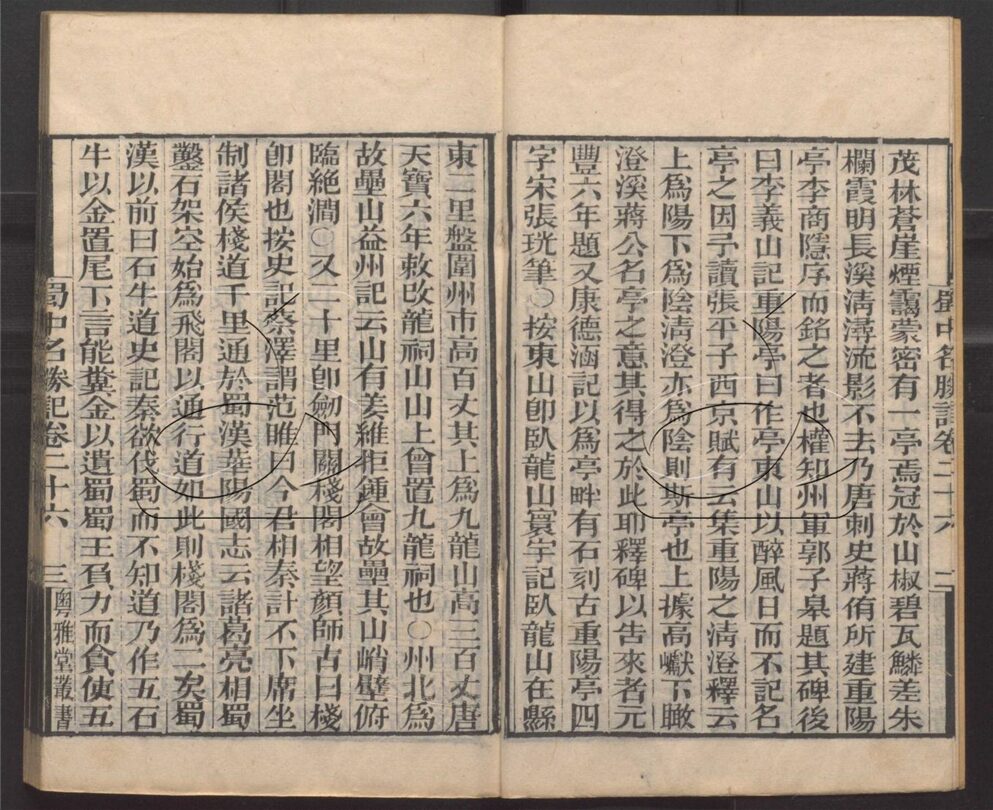 茂林蒼崖煙靄蒙密有一亭焉冠於山椒碧瓦鱗差朱
欄霞明長溪淸潯流影不去乃唐刺史蔣侑所建重陽
亭李商隱序而銘之者也權知州軍郭子皋題其碑後
曰李義山記重陽亭曰作亭東山以醉風日而不記名
亭之因予讀張平子西京賦有云集重陽之淸澄釋云
上爲陽下爲陰淸澄亦爲陰則斯亭也上據高巘下瞰
澄溪蔣公名亭之意其得之於此耶釋碑以告來者元
豐六年題又康德涵記以爲亭畔有石刻古重陽亭四
字宋張珖筆○按東山卽臥龍山寰宇記臥龍山在縣
蜀中名勝記卷二十六 二
東二里盤圍州市高百丈其上爲九龍山高三百丈唐
天寶六年敕改龍祠山山上曾置九龍祠也○州北爲
故壘山益州記云山有姜維拒鍾會故壘其山峭壁俯
臨絶澗○又二十里卽劒門關棧閣相望顏師古曰棧
卽閣也按史記蔡澤謂范睢曰今君相秦計不下席坐
制諸侯棧道千里通於蜀漢華陽國志云諸葛亮相蜀
鑿石架空始爲飛閣以通行道如此則棧閣爲二矣蜀
漢以前曰石牛道史記秦欲伐蜀而不知道乃作五石
牛以金置尾下言能糞金以遺蜀蜀王負力而貪使五
蜀中名勝記卷二十六 三 粵雅堂叢書